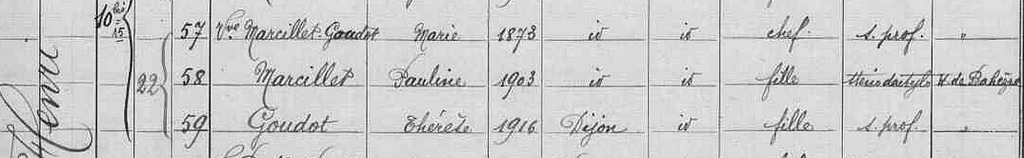 10 bis
15
Henri
22
57 Vve Marcillet-Goudot Marie 1873 id id chef s. prof. "
58 Marcillet Pauline 1903 id id fille sténo dactylo
59 Goudot Thérèse 1916 Dijon id fille s. prof. "